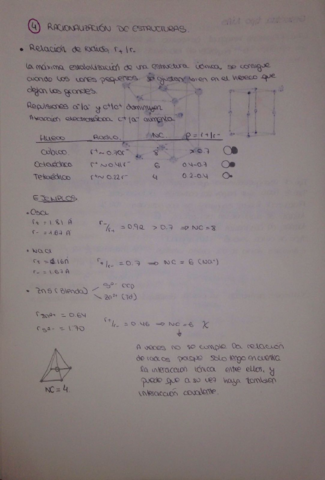 ④ RACIONALIZACIÓN DE ESTRUCTURAS
• Relación de radios r+/r-
La máxima estabilización de una estructura iónica, se consigue
cuando los iones pequeños se distribuyen en el hueco que
dejan los grandes.
Repulsiones a-/a- y c+/c+ disminuyen
Atracción electrostática c+/a- aumenta.
HUECO RADIO NC ρ = r+/r-
Cúbico 8 > 0.7
Octaédrico 6 0.4-0.7
Tetraédrico 4 0.2-0.4
EJEMPLOS
• CsCl
r+ = 1.81 Å
r+/r- = 0.92 > 0.7 ⇒ NC = 8
•
r+/r- = 0.7 ⇒ NC = 6
• ZnS (Blenda)
r+/r- = ⇒ NC = 6 X
A veces no se cumple la relación
de radios porque solo tengo en cuenta
la interacción iónica entre ellos, y
puede que a su vez haya también
interacción covalente.
NC = 4